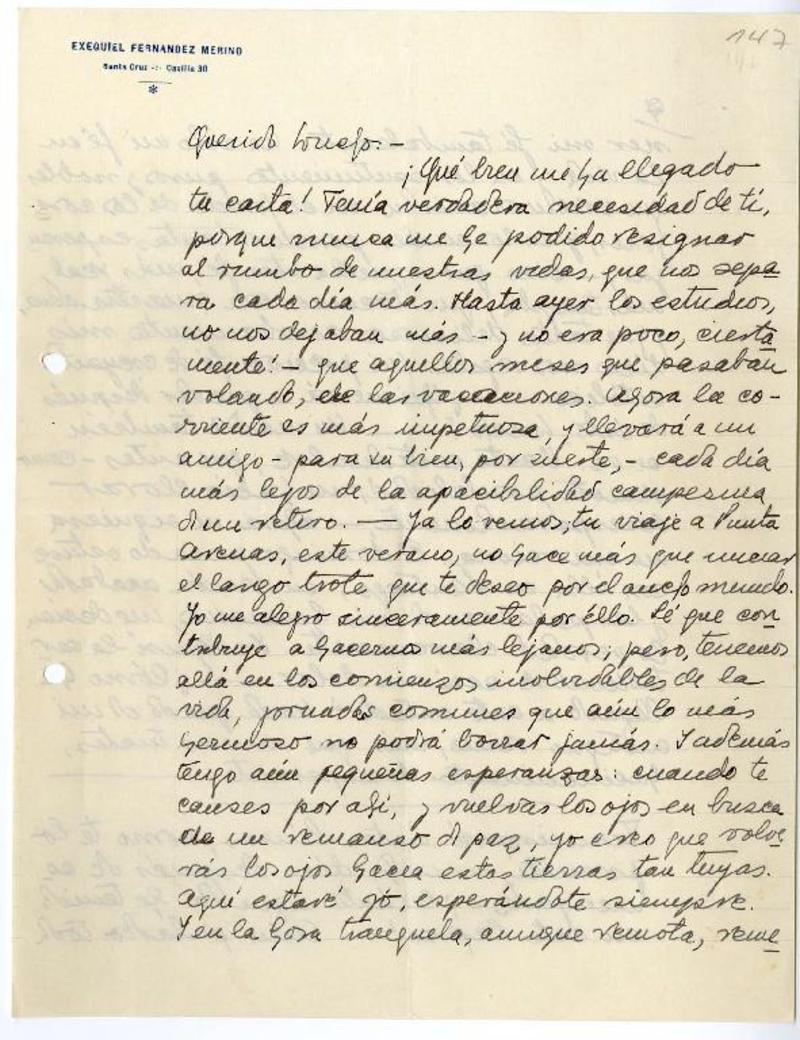 147
EXEQUIEL FERNANDEZ MERINO
Santa Cruz -:- Casilla 30
*
Querido :-
¡Qué bien me ha llegado
tu carta! Tenía verdadera necesidad de tí,
porque nunca me he podido resignar
al rumbo de nuestras vidas, que nos sepa
ra cada día más. Hasta ayer los estudios,
no nos dejaban más - y no era poco, cierta
mente! - que aquellos meses que pasaban
volando, de las vacaciones. Ahora la co-
rriente es más impetuosa, y llevará a mi
amigo - para su bien, por suerte, - cada día
más lejos de la apacibilidad campesina
di mi retiro. — Ya lo vemos; tu viaje a Punta
Arenas, este verano, no hace más que iniciar
el largo trote que te deseo por el ancho mundo.
Yo me alegro sinceramente por éllo. Sé que con
tribuye a hacernos más lejanos; pero, tenemos
allá en los comienzos inolvidables de la
vida, jornadas comunes que aún lo más
hermoso no podrá borrar jamás. Y además
tengo aún pequeñas esperanzas: cuando te
canses por ahí, y vuelvas los ojos en busca
de un remanso di paz, yo creo que volve
rás los ojos hacia estas tierras tan tuyas.
Aquí estaré yó, esperándote siempre.
Y en la hora tranquila, aunque remota, reme